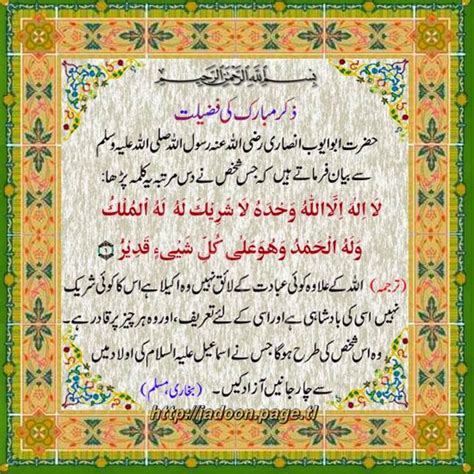 بسم اللہ الرحمن الرحیم
ذکر مبارک کی فضیلت
حضرت ابوایوب انصاری رضی اللہ عنہ رسول اللہ صلی اللہ علیہ وسلم
سے بیان فرماتے ہیں کہ جس شخص نے دس مرتبہ یہ کلمہ پڑھا:
لَا اِلٰهَ اِلَّا اللّٰهُ وَحْدَهُ لَا شَرِيْكَ لَهُ لَهُ الْمُلْكُ
وَلَهُ الْحَمْدُ وَهُوَ عَلٰى كُلِّ شَيْیءٍ قَدِيْرُ
(ترجمہ) اللہ کے علاوہ کوئی عبادت کے لائق نہیں وہ اکیلا ہے اس کا کوئی شریک
نہیں اسی کی بادشاہی ہے اور اسی کے لئے تعریف، اور وہ ہر چیز پر قادر ہے۔
وہ اس شخص کی طرح ہوگا جس نے اسماعیل علیہ السلام کی اولاد میں
سے چار جانیں آزاد کیں۔ (بخاری، مسلم)
http://jadoon.page.tl